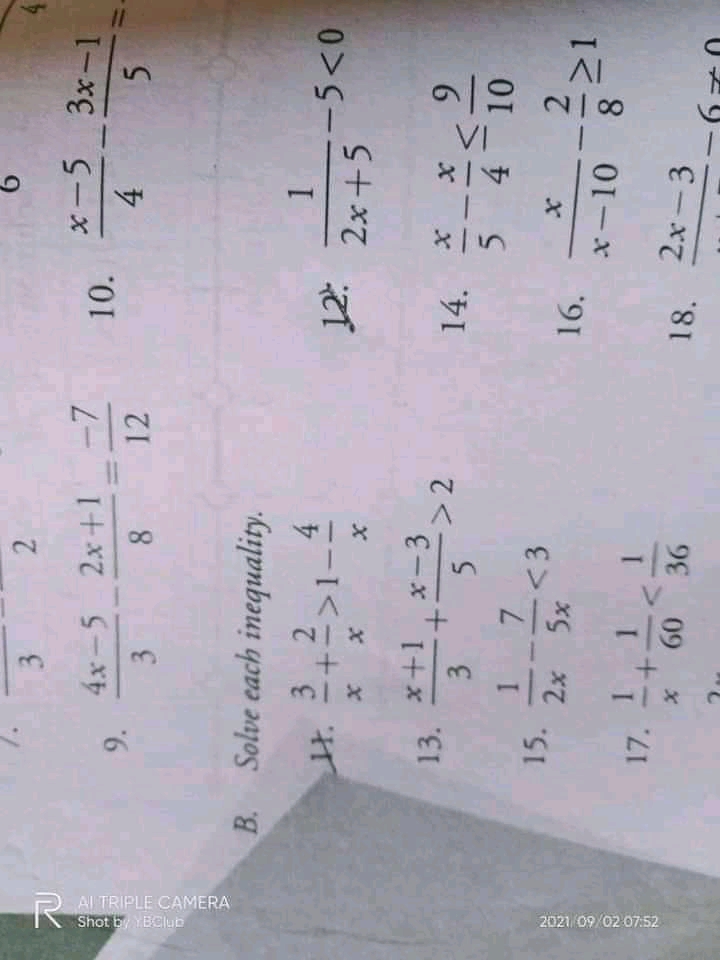 6
7.
3
2
9. (4x-5)/3 - (2x+1)/8 = -7/12
10. (x-5)/4 - (3x-1)/5 =
B. Solve each inequality.
11. 3/x + 2/x > 1 - 4/x
12. 1/(2x+5) - 5 < 0
13. (x+1)/3 + (x-3)/5 > 2
14. x/5 - x/4 ≤ 9/10
15. 1/2x - 7/5x < 3
16. x/(x-10) - 2/8 ≥ 1
17. 1/x + 1/60 < 1/36
18. 2x-3
AI TRIPLE CAMERA
Shot by YBClub
2021/09/02 07:52